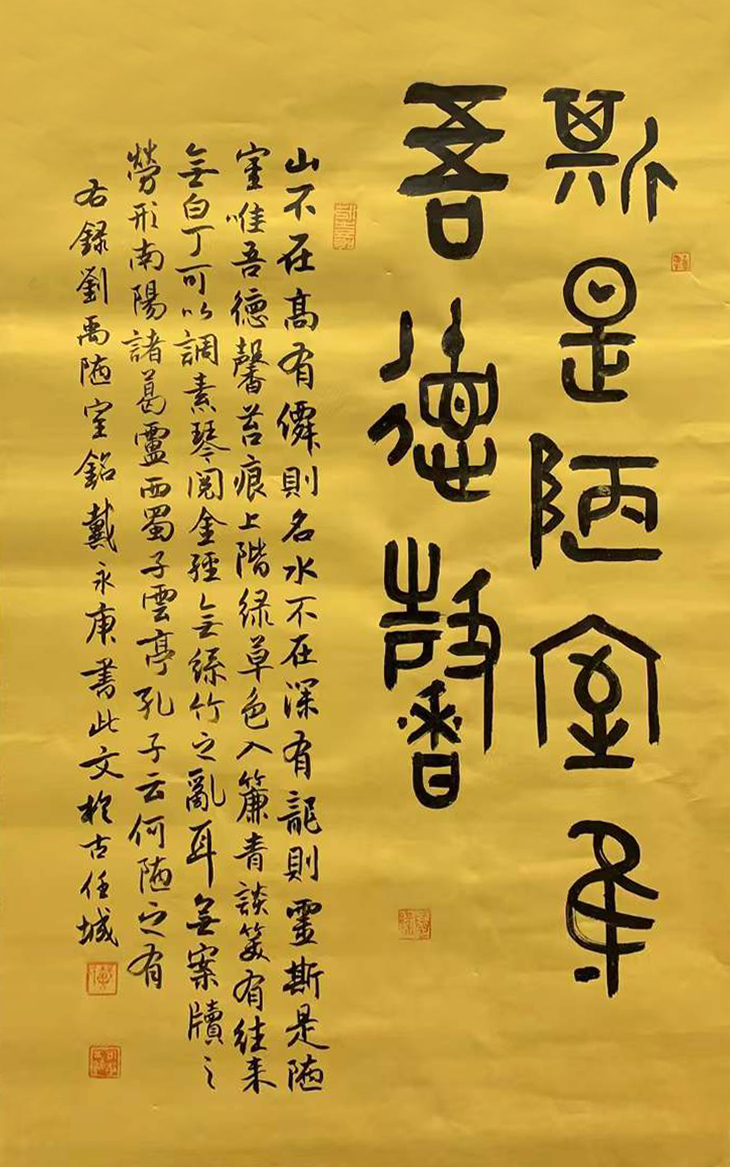 斯是陋室隹
吾德馨
山不在高有僊則名水不在深有龍則靈斯是陋
室唯吾德馨苔痕上階绿草色入簾青談笑有往来
無白丁可以調素琴閱金經無絲竹之亂耳無案牘之
勞形南陽諸葛盧西蜀子雲亭孔子云何陋之有
右録劉禹陋室銘戴永庚書此文於古任城